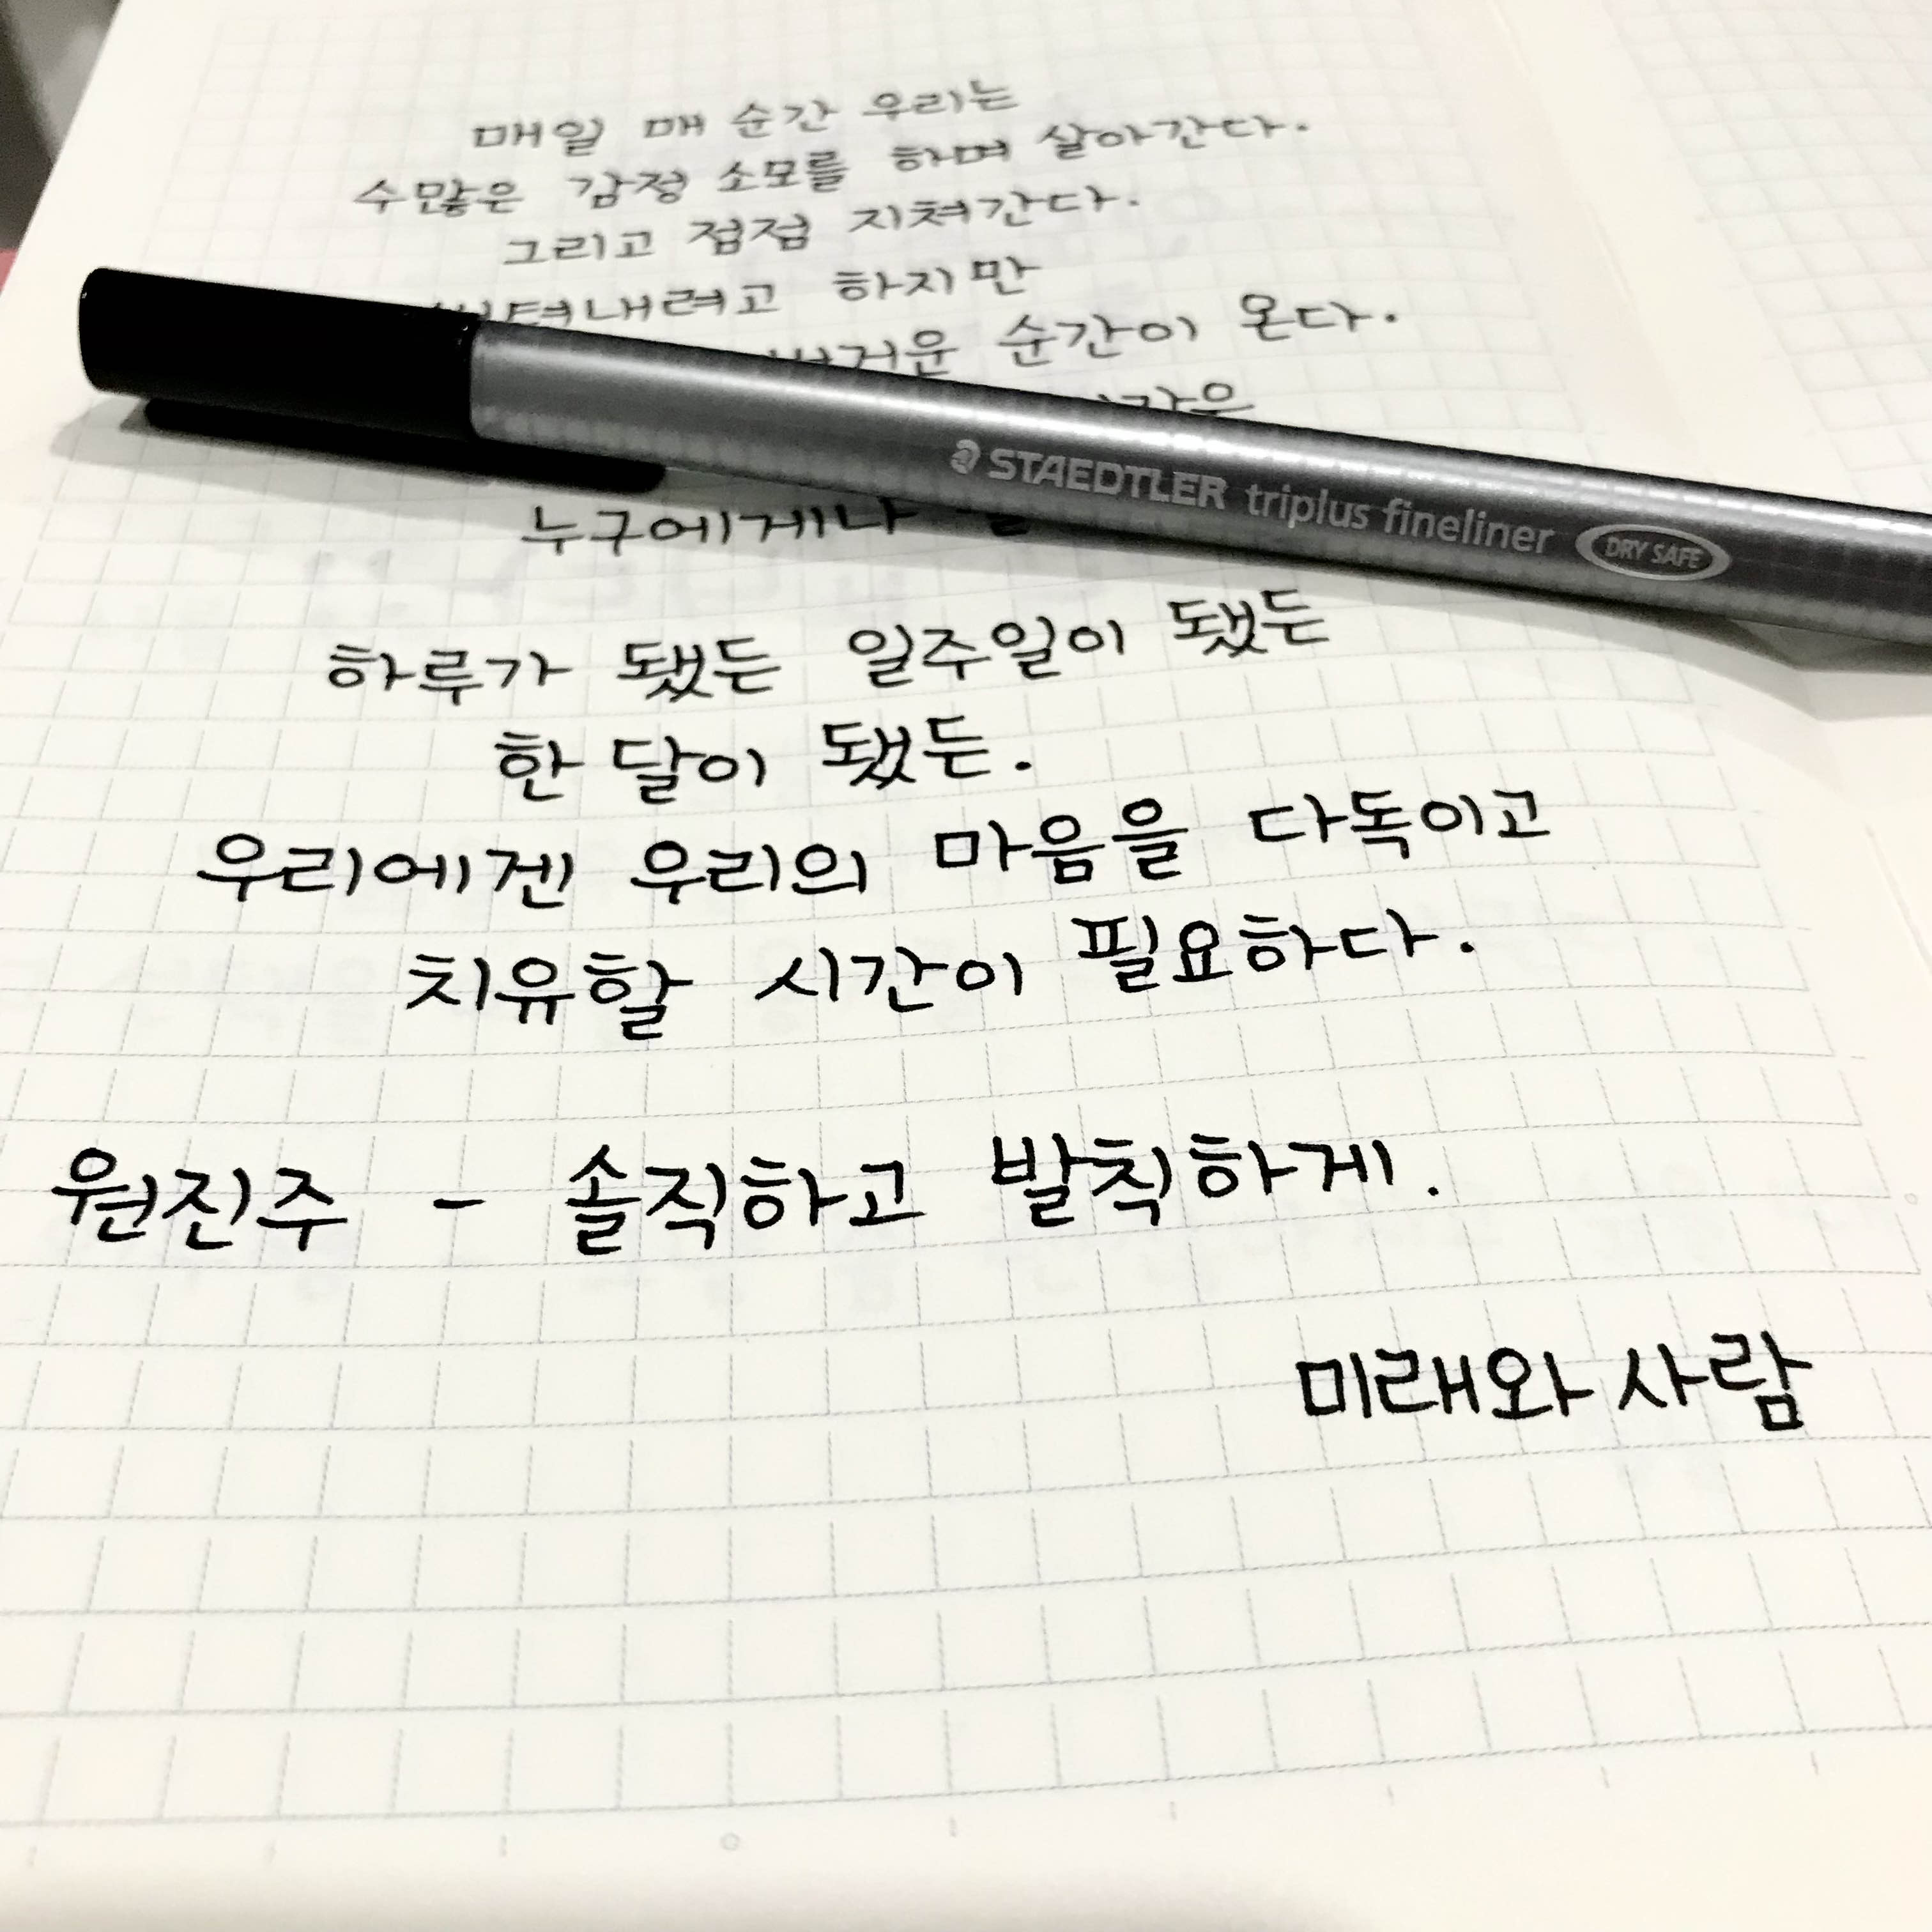 매일 매 순간 우리는
수많은 감정 소모를 하며 살아간다.
그리고 점점 지쳐간다.
하지만
순간이 온다.
STAEDTLER triplus fineliner DRY SAFE
누구에게나
하루가 됐든 일주일이 됐든
한 달이 됐든.
우리에겐 우리의 마음을 다독이고
치유할 시간이 필요하다.
원진주 - 솔직하고 발칙하게.
미래와 사람